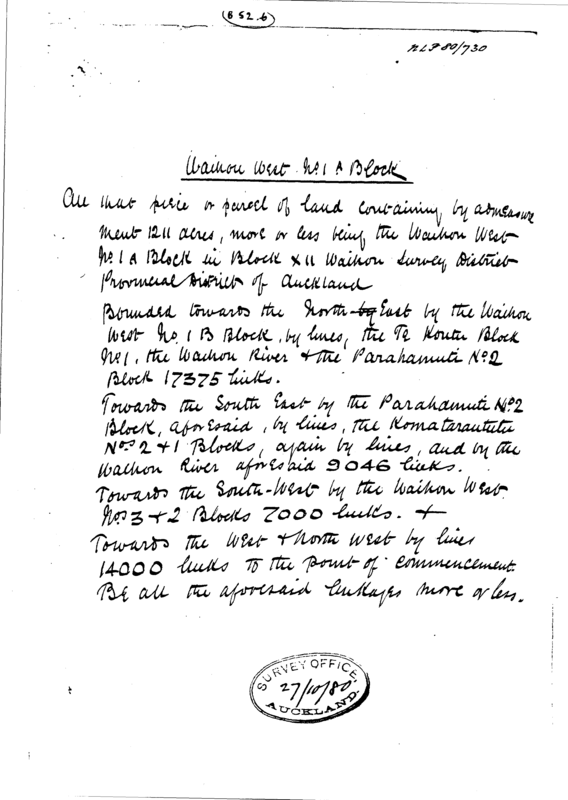 B 52.6
NLP 80/730
Waihou West No 1 A Block
All that piece or parcel of land containing by admeasure
ment 1211 acres, more or less being the Waihou West
No 1 A Block in Block XII Waihou Survey District
Provincial District of Auckland
Bounded towards the North by East by the Waihou
West No. 1 B Block, by lines, the Te Kouti Block
No 1, the Waihou River & the Parahamuti No 2
Block 17375 links.
Towards the South East by the Parahamuti No 2
Block, aforesaid, by lines, the Komataraututu
Nos 2 & 1 Blocks, again by lines, and by the
Waihou River aforesaid 9046 links.
Towards the South-West by the Waihou West
Nos 3 & 2 Blocks 7000 links. +
Towards the West & North West by lines
14000 links to the point of commencement
Be all the aforesaid linkages more or less.
SURVEY OFFICE.
27/10/80
AUCKLAND.